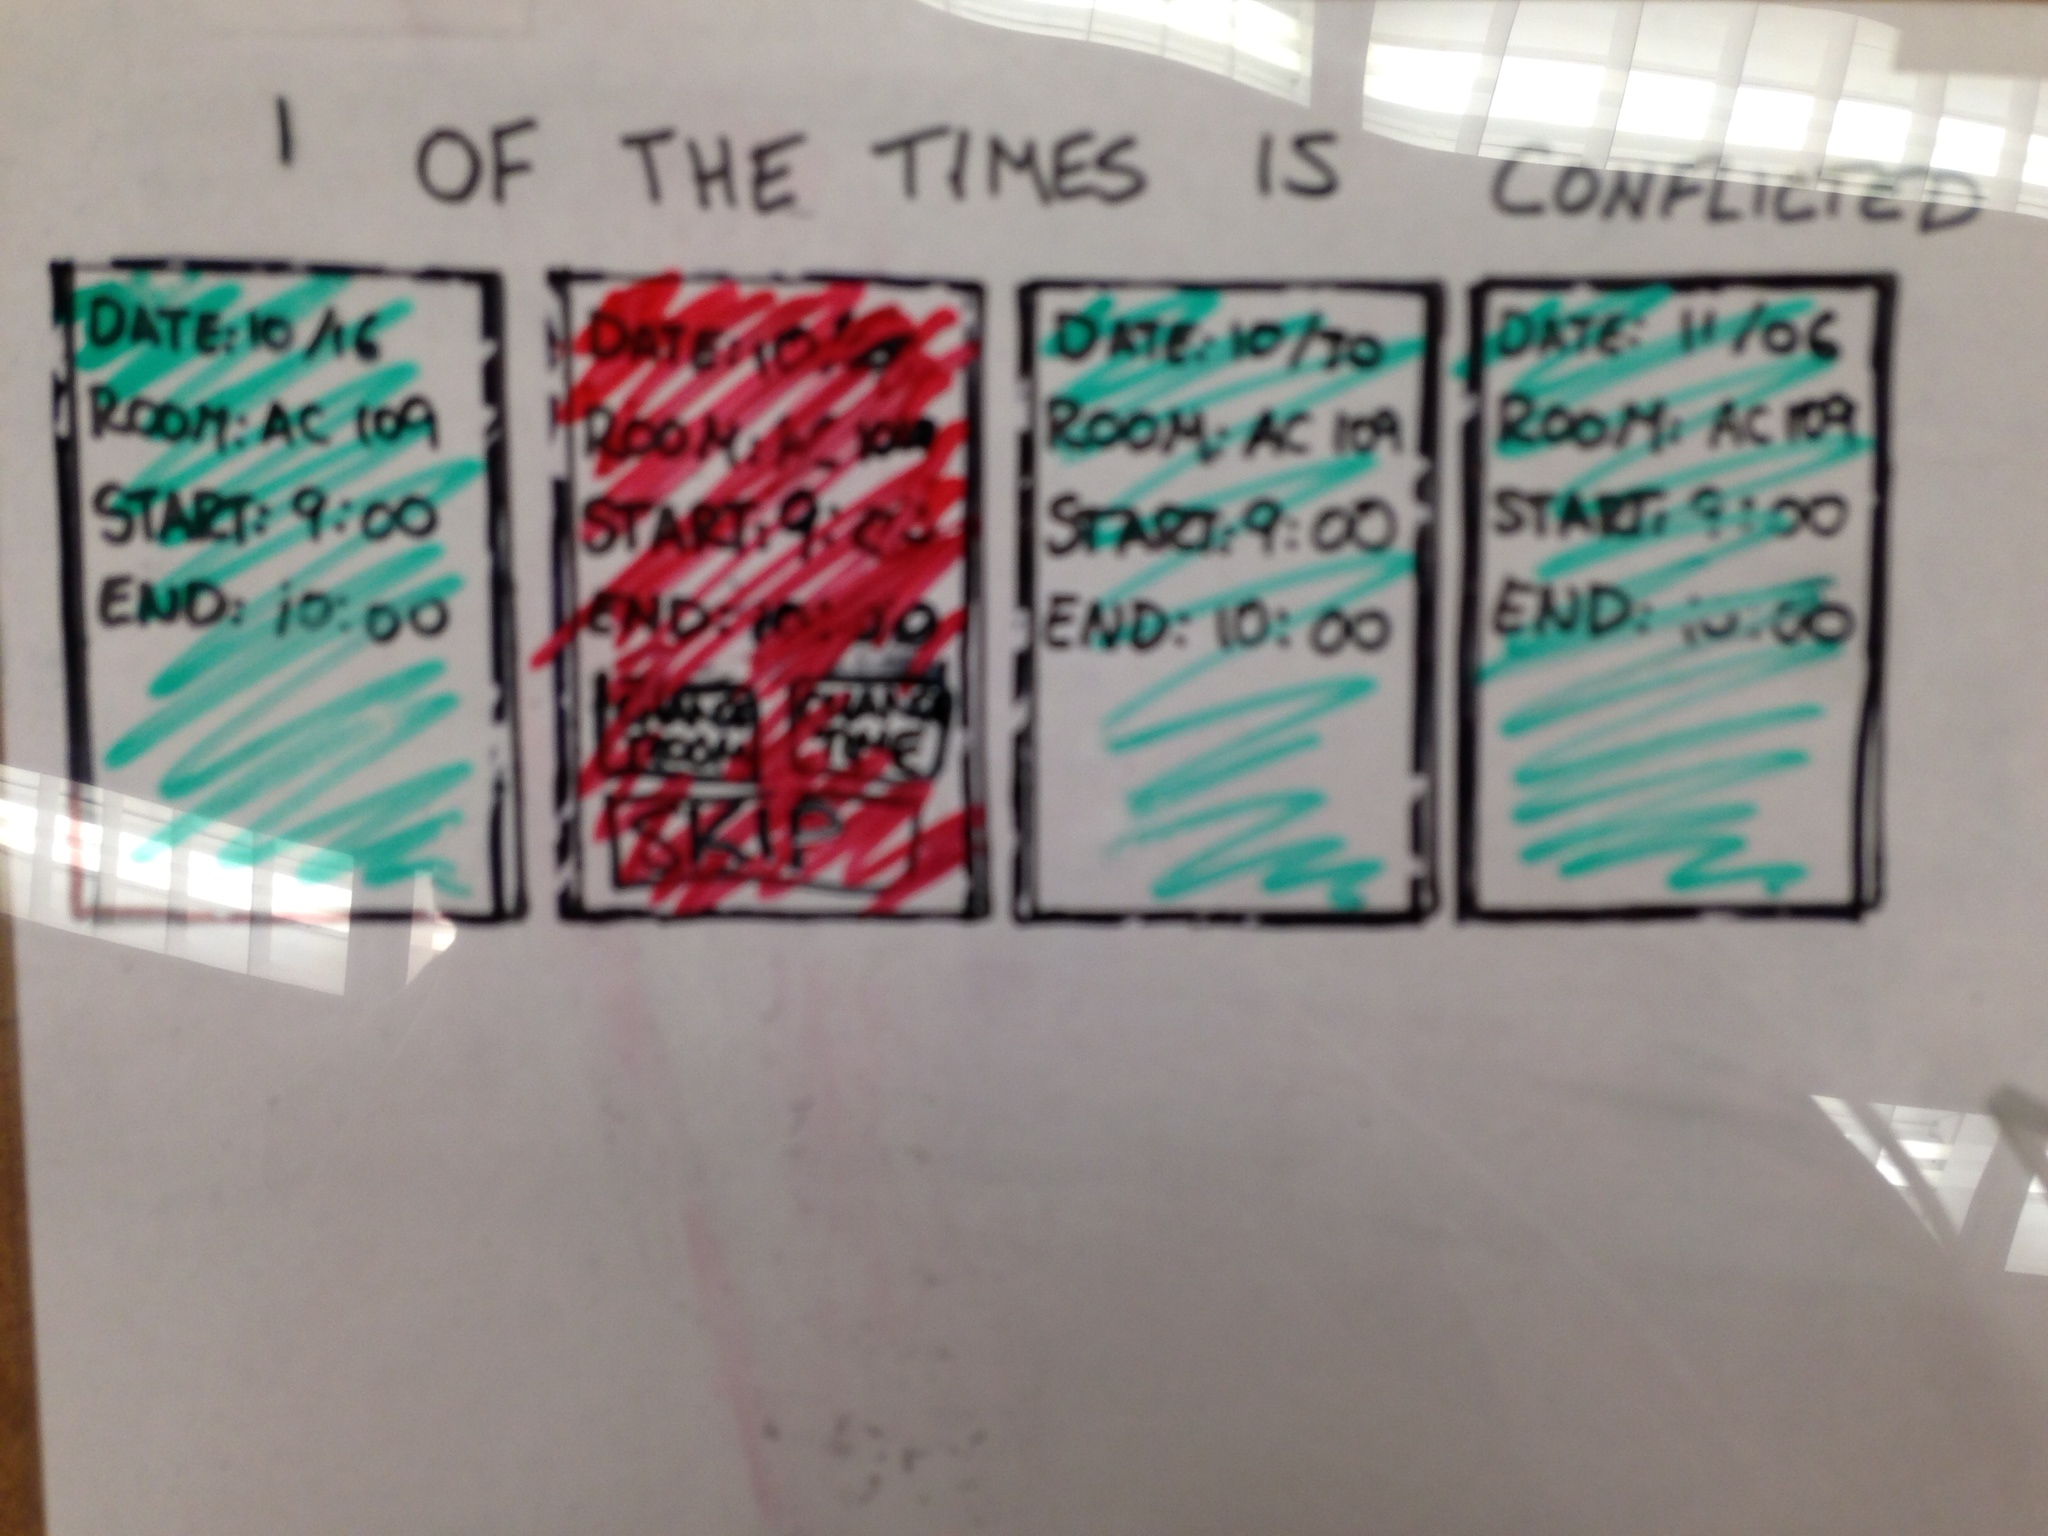 1 OF THE TIMES IS CONFLICTED
DATE: 10/16
ROOM: AC 109
START: 9:00
END: 10:00
DATE:
ROOM: AC
START: 9:
END: 10:00
CHANGE ROOM
CHANGE TIME
SKIP
DATE: 10/30
ROOM: AC 109
START: 9:00
END: 10:00
DATE: 11/06
ROOM: AC 109
START: 9:00
END: 10:00